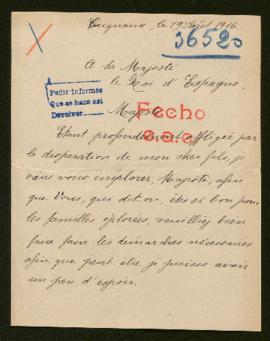 Cugnaux, le 19 Août 1916.
36520
A Sa Majesté
le Roi d'Espagne,
Pedir informes
Que se hace así
Devolver
Majesté
Fecho
Etant profondément affligée par
la disparation de mon cher fils, je
vous implorer, Majesté, afin
que Vous, qui dit on, êtes si bon pour
les familles éplorées, veuillez bien
faire faire les démarches nécessaires
afin que peut être je puisse avoir
un peu d'espoir.